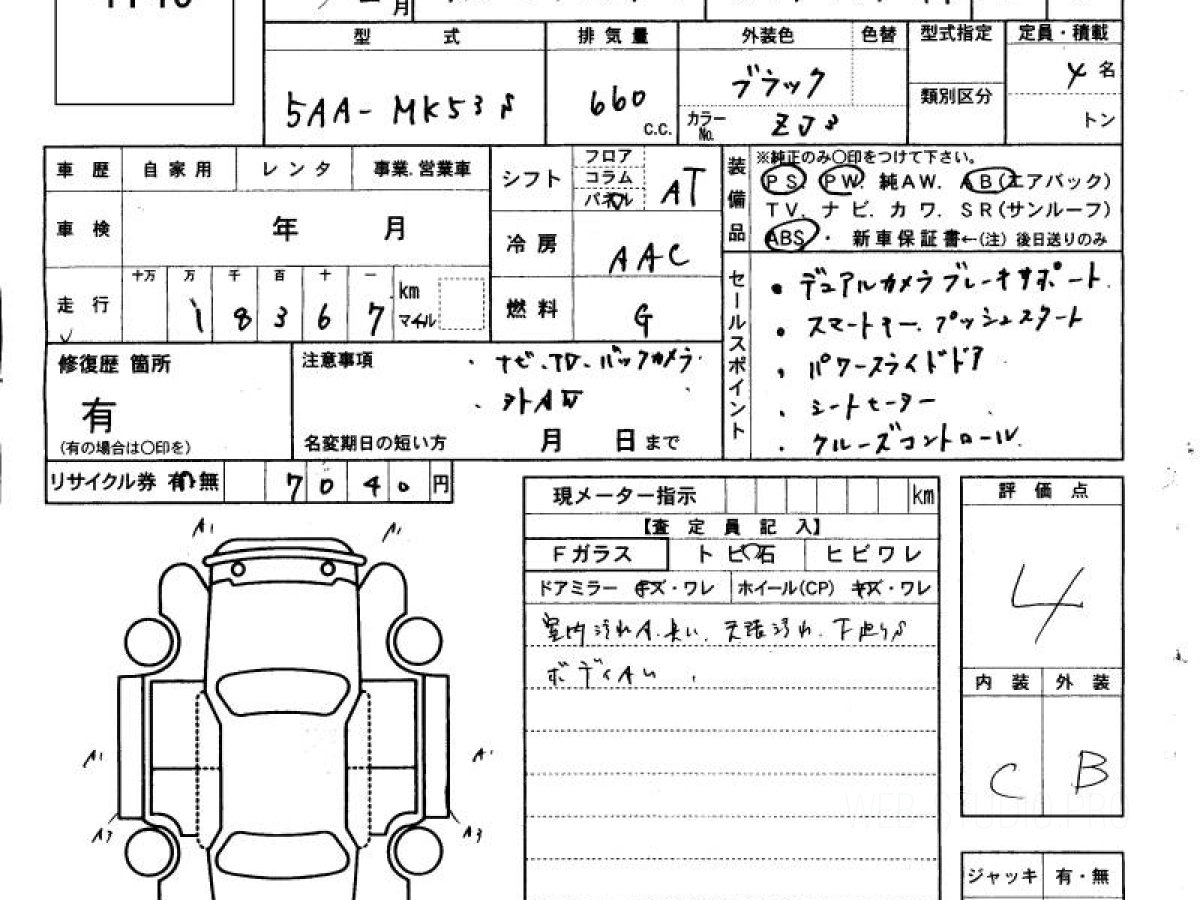 月
型 式
排 気 量
外装色
色替
型式指定
定員・積載
5AA-MK53S
660
C.C.
ブラック
カラーNo.
ZJ3
類別区分
4 名
トン
車 歴
自 家 用
レ ン タ
事業.営業車
シフト
フロア
コラム
パネル
AT
装備品
※純正のみ〇印をつけて下さい。
PS. PW. 純AW. AB(エアバック)
TV. ナビ. カワ. SR(サンルーフ)
ABS ・ 新車保証書←(注) 後日送りのみ
車 検
年 月
冷 房
AAC
走 行
十万 万 千 百 十 一
1 8 3 6 7
km
マイル
燃 料
G
セールスポイント
・デュアルカメラブレーキサポート.
・スマートキー.プッシュスタート
・パワースライドドア
・シートヒーター
・クルーズコントロール.
修復歴 箇所
有
(有の場合は〇印を)
注意事項
・ナビ.TV.バックカメラ.
・
名変期日の短い方
月 日まで
リサイクル券 有・無
7 0 4 0 円
現メーター指示
km
【査 定 員 記 入】
Fガラス
ト ビ 石
ヒビワレ
ドアミラー キズ・ワレ
ホイール(CP) キズ・ワレ
室内汚れA.臭い.天張汚れ.下廻りS
ボディAい.
評 価 点
4
内 装
外 装
C
B
ジャッキ
有・無
A1
A1
A1
A1
A3
A3